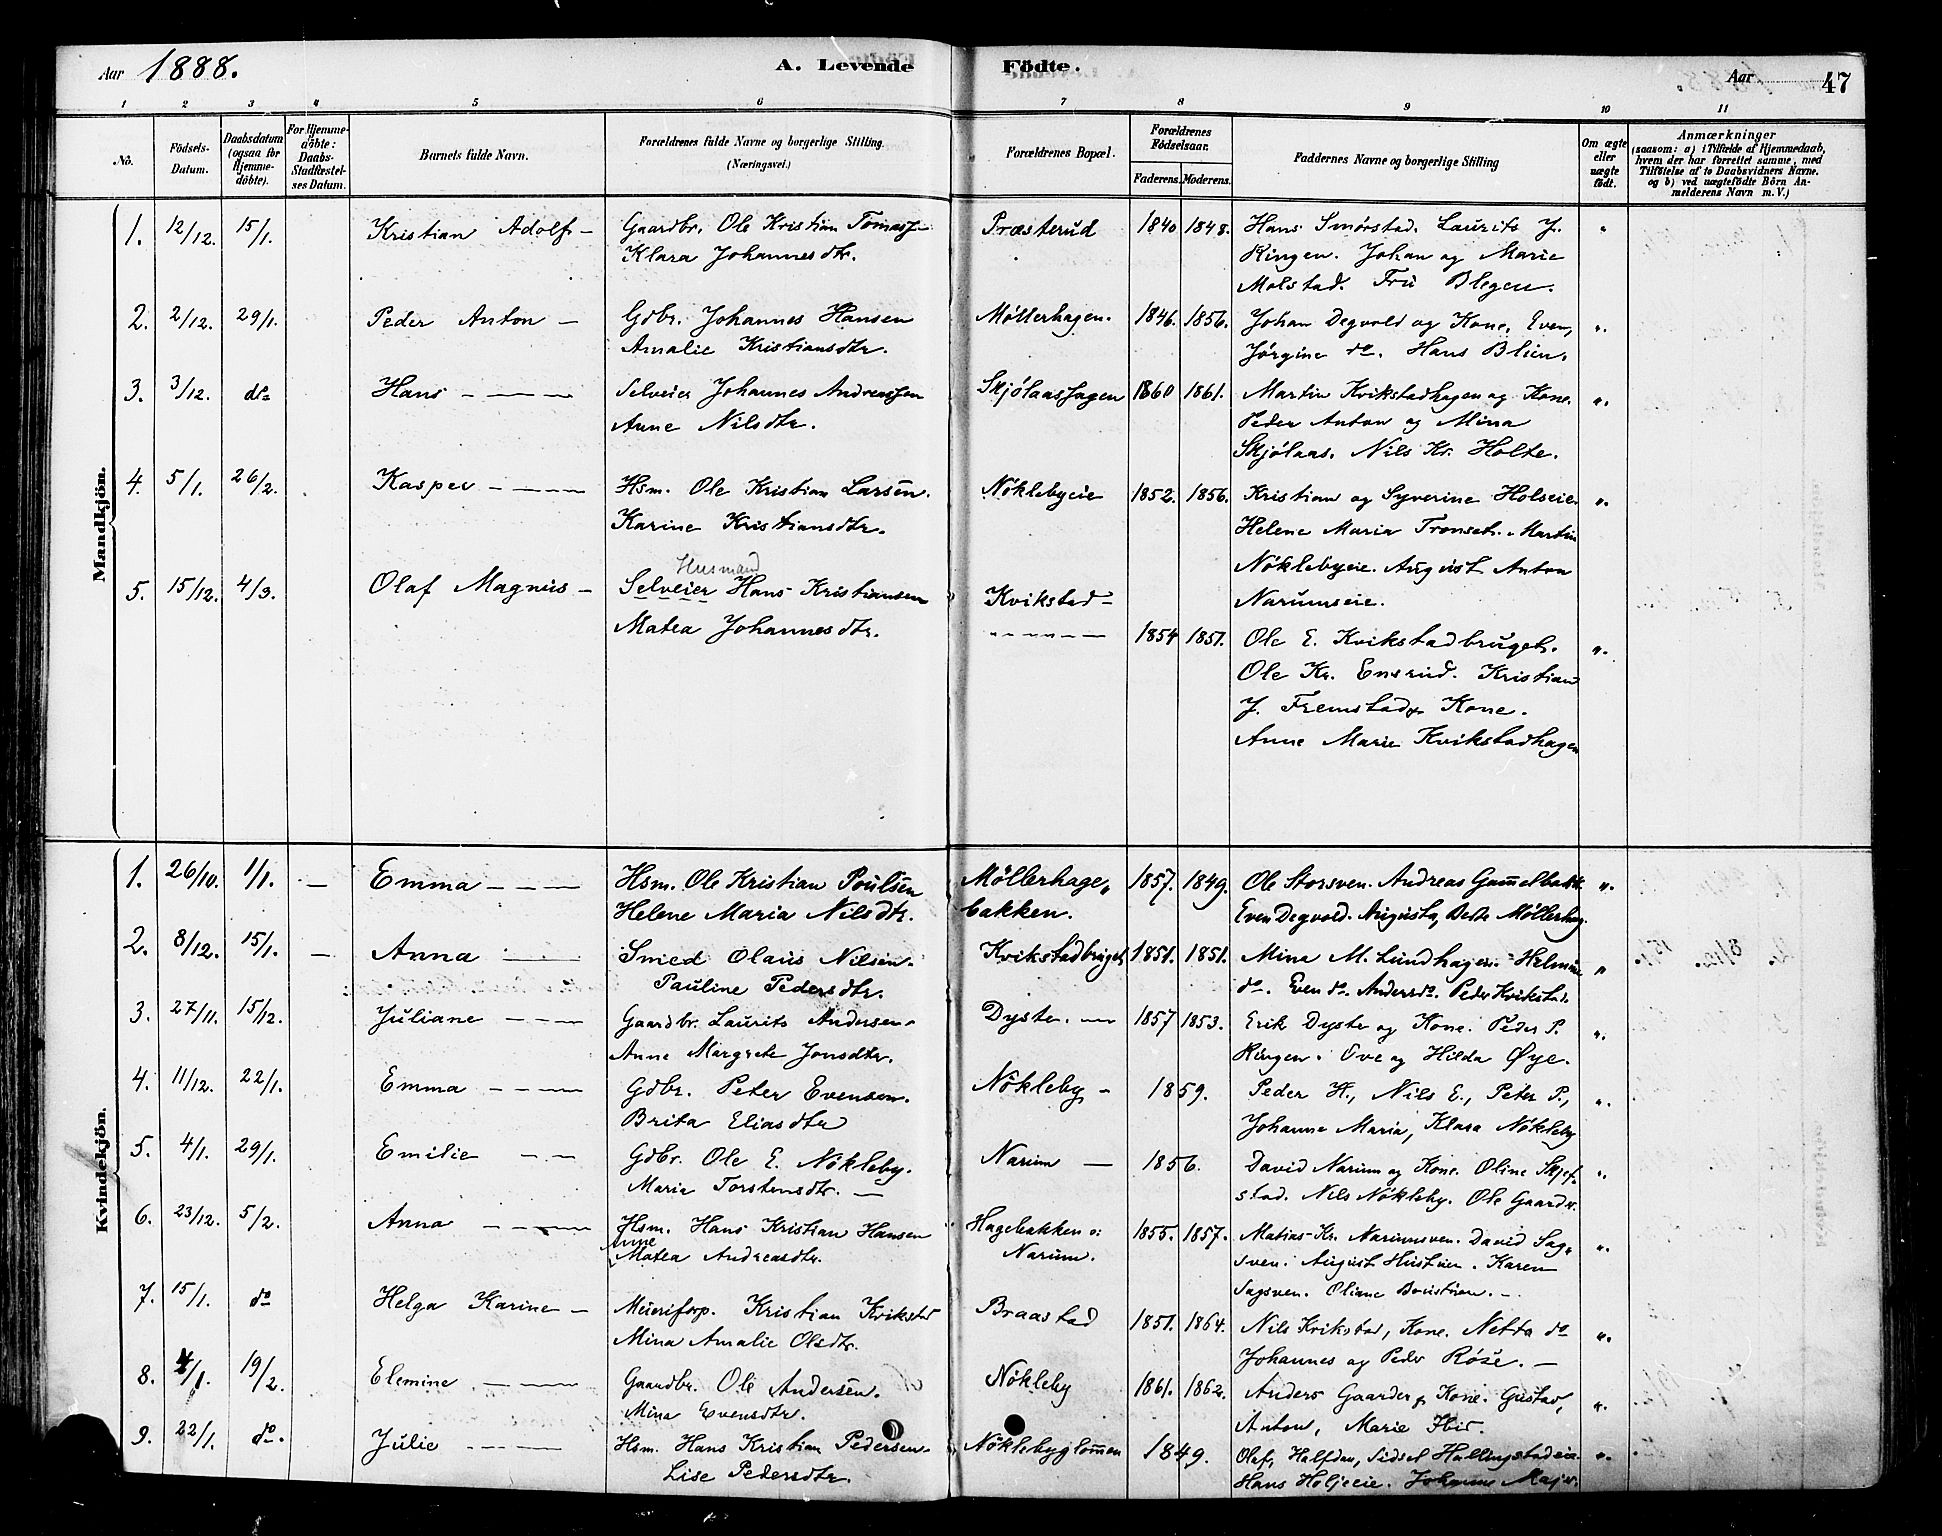 Aar 1888. A. Levende Födte. Aar 47
1 2 3 4 5 6 7 8 9 10 11
Nö. Födsels-Datum. Daabsdatum (ogsaa for Hjemme-döbte). For Hjemme-döbte: Daabs-Stadfæstel-ses Datum. Barnets fulde Navn. Forældrenes fulde Navne og borgerlige Stilling. (Næringsvei.) Forældrenes Bopæl. Forældrenes Födselsaar. Faderens. Moderens. Faddernes Navne og borgerlige Stilling Om ægte eller uægte födt. Anmærkninger (saasom: a) i Tilfælde af Hjemmedaab, hvem der har forrettet samme, med Tilföielse af to Daabsvidners Navne. og b) ved uægtefödte Börn An-melderens Navn m. V.)
Mandkjön.
1. 12/12. 15/1. Kristian Adolf - Gaardbr. Ole Kristian Tomass. Præsterud 1840 1848. Hans Smørstad. Laurits J.
Klara Johannesdtr. Ringen. Johan og Marie
Molstad. Fru Blegen.
2. 2/12. 29/1. Peder Anton - Gdbr. Johannes Hansen Møllerhagen. 1846. 1856. Johan Degvold og Kone, Even,
Amalie Kristiansdtr. Jørgine do. Hans Blien.
3. 3/12. do Hans - - - Selveier Johannes Andreassen Skjölaashagen 1860 1861. Martin Kvikstadhagen og Kone.
Anne Nilsdtr. Peder Anton og Mina
Skjölaas. Nils Kr. Holte.
4. 5/1. 26/2. Kasper - - - Hsm. Ole Kristian Larsen. Nöklebyeie 1852. 1856. Kristian og Syverine Holseie.
Karine Kristiansdtr. Helene Maria Tronset. Martin
Husmand Nöklebyeie. August Anton
5. 15/12. 4/3. Olaf Magnus - Selveier Hans Kristiansen Kvikstad - Narumseie.
Matea Johannesdtr. 1854 1851. Ole E. Kvikstadbruget.
Ole Kr. Ensrud. Kristian
J. Fremstad & Kone.
Anne Marie Kvikstadhagen
Kvindekjön.
1. 26/10. 1/1. - Emma - - - Hsm. Ole Kristian Poulsen Möllerhage- 1857. 1849. Ole Storsven. Andreas Gammelbakk.
Helene Maria Nilsdtr. bakken. Even Degvold. Augusta, Berte Möllerhag.
2. 8/12. 15/1. - Anna - - Smed Olaus Nilsen. Kvikstadbruget 1851. 1851. Mina M. Lundhagen. Helmine
Pauline Pedersdtr. do. Even do. Anders do. Peder Kvikstad.
3. 27/11. 15/12. Juliane - - - Gaardbr. Laurits Andersen. Dyste. - 1857 1853. Erik Dyste og Kone. Peder P.
Anne Margrete Jonsdtr. Ringen. Ove og Hilda Øye.
4. 11/12. 22/1. Emma - - - Gdbr. Peter Evensen. Nökleby - 1859. Peder H., Nils E., Peter P.,
Brita Eliasdtr Johanne Maria, Klara Nökleby
5. 4/1. 29/1. Emilie - - Gdbr. Ole E. Nökleby. Narum - 1856. David Narum og Kone. Oline Skjef-
Maria Torstensdtr. - stad. Nils Nökleby. Ole Gaarder.
6. 23/12. 5/2. Anna - - - Hsm. Hans Kristian Hansen Hagebakken o: 1855. 1857. Matias Kr. Narumsven. David Sag-
Anne Matea Andreasdtr. Narum. sven. August Hustuen. Karen
Sagsven. Oliane -
7. 15/1. do Helga Karine - Meieriforp. Kristian Kvikstad Braastad 1851. 1864. Nils Kvikstad, Kone. Netta do
Mina Amalie Olsdtr. Johannes og Peder Røise. -
8. 4/1. 19/2. Elemine. - - Gaardbr. Ole Andersen. Nökleby 1861. 1862. Anders Gaarder & Kone. Gustav,
Mina Evensdtr. Anton, Marie
9. 22/1. do. Julie - - - Hsm. Hans Kristian Pedersen. Nöklebyglommen 1849. Olaf, Halfdan, Sidsel Hallingstadeie.
Lise Pedersdtr. Hans Holjeeie. Johanne